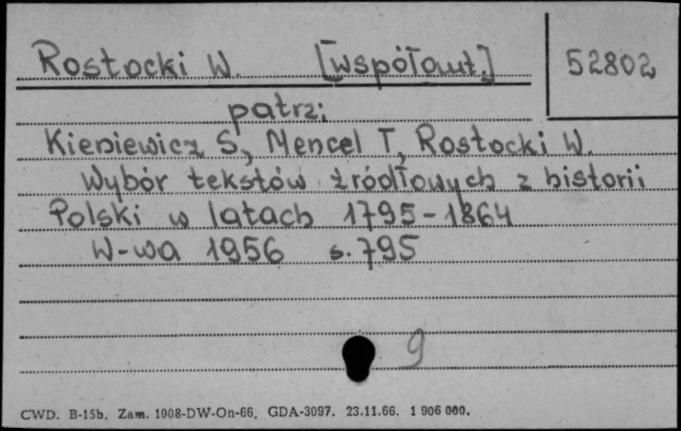 Rostocki W. [współaut.]
52802
patrz:
Kieniewicz S., Mencel T., Rostocki W.
Wybór tekstów źródłowych z historii
Polski w latach 1795-1864
W-wa 1956 s. 795
9
CWD. B-15b. Zam. 1008-DW-On-66. GDA-3097. 23.11.66. 1 906 000.